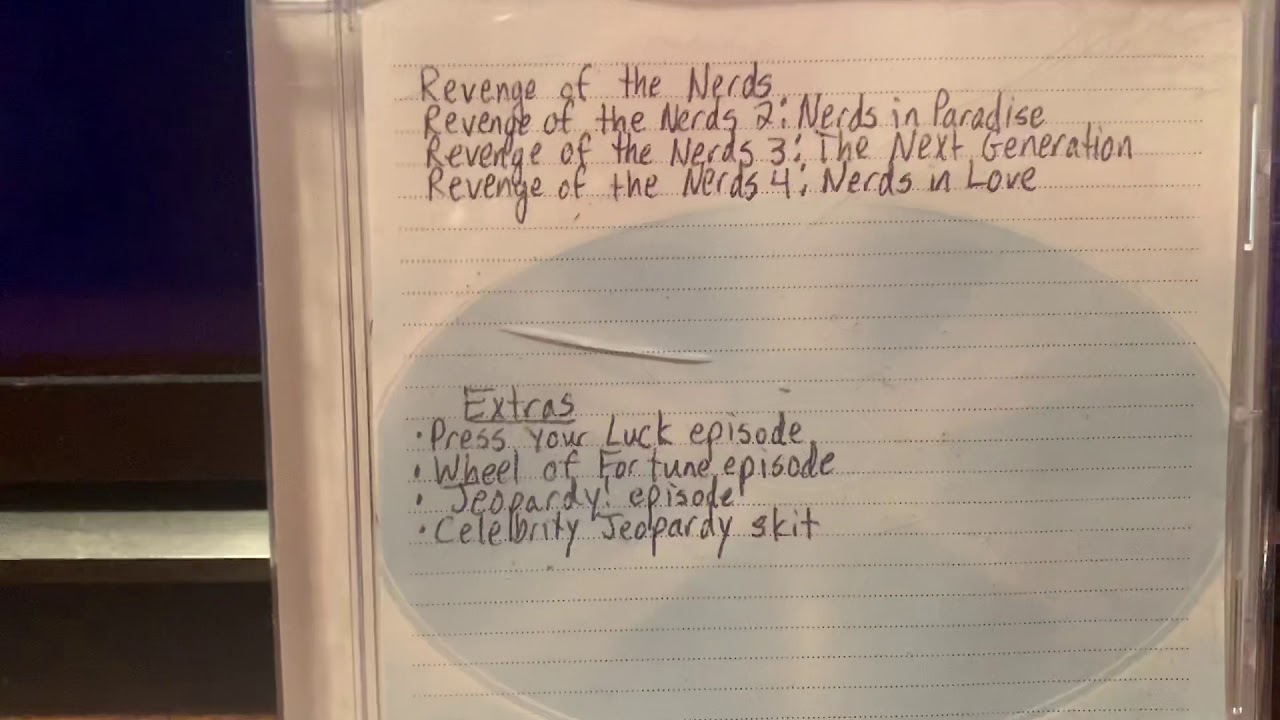 Revenge of the Nerds
Revenge of the Nerds 2: Nerds in Paradise
Revenge of the Nerds 3: The Next Generation
Revenge of the Nerds 4: Nerds in Love
Extras
· Press Your Luck episode
· Wheel of Fortune episode
· Jeopardy! episode
· Celebrity Jeopardy skit